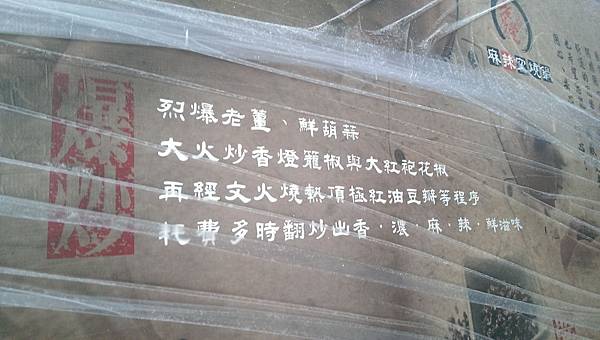 爆炒
烈爆老薑、鮮葫蒜
大火炒香燈籠椒與大紅袍花椒
再經文火燒熱頂極紅油豆瓣等程序
耗費多時翻炒出香，濃，麻，辣，鮮滋味
麻辣窯燒鍋